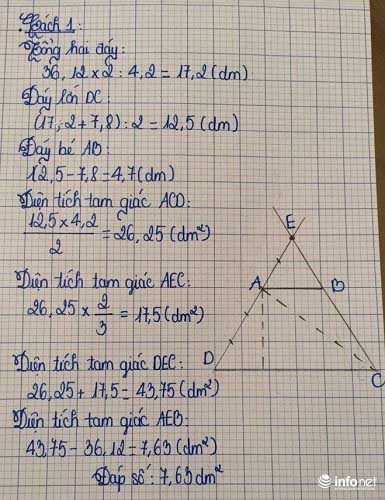 Cách 1:
Tổng hai đáy:
36,12 x 2 : 4,2 = 17,2 (dm)
Đáy lớn DC:
(17,2 + 7,8) : 2 = 12,5 (dm)
Đáy bé AB:
12,5 - 7,8 = 4,7 (dm)
Diện tích tam giác ACD:
12,5 x 4,2
2
= 26,25 (dm²)
Diện tích tam giác AEC:
26,25 x 2/3 = 17,5 (dm²)
Diện tích tam giác DEC:
26,25 + 17,5 = 43,75 (dm²)
Diện tích tam giác AEB:
43,75 - 36,12 = 7,63 (dm²)
Đáp số: 7,63 dm²
E
A B
D C
infonet